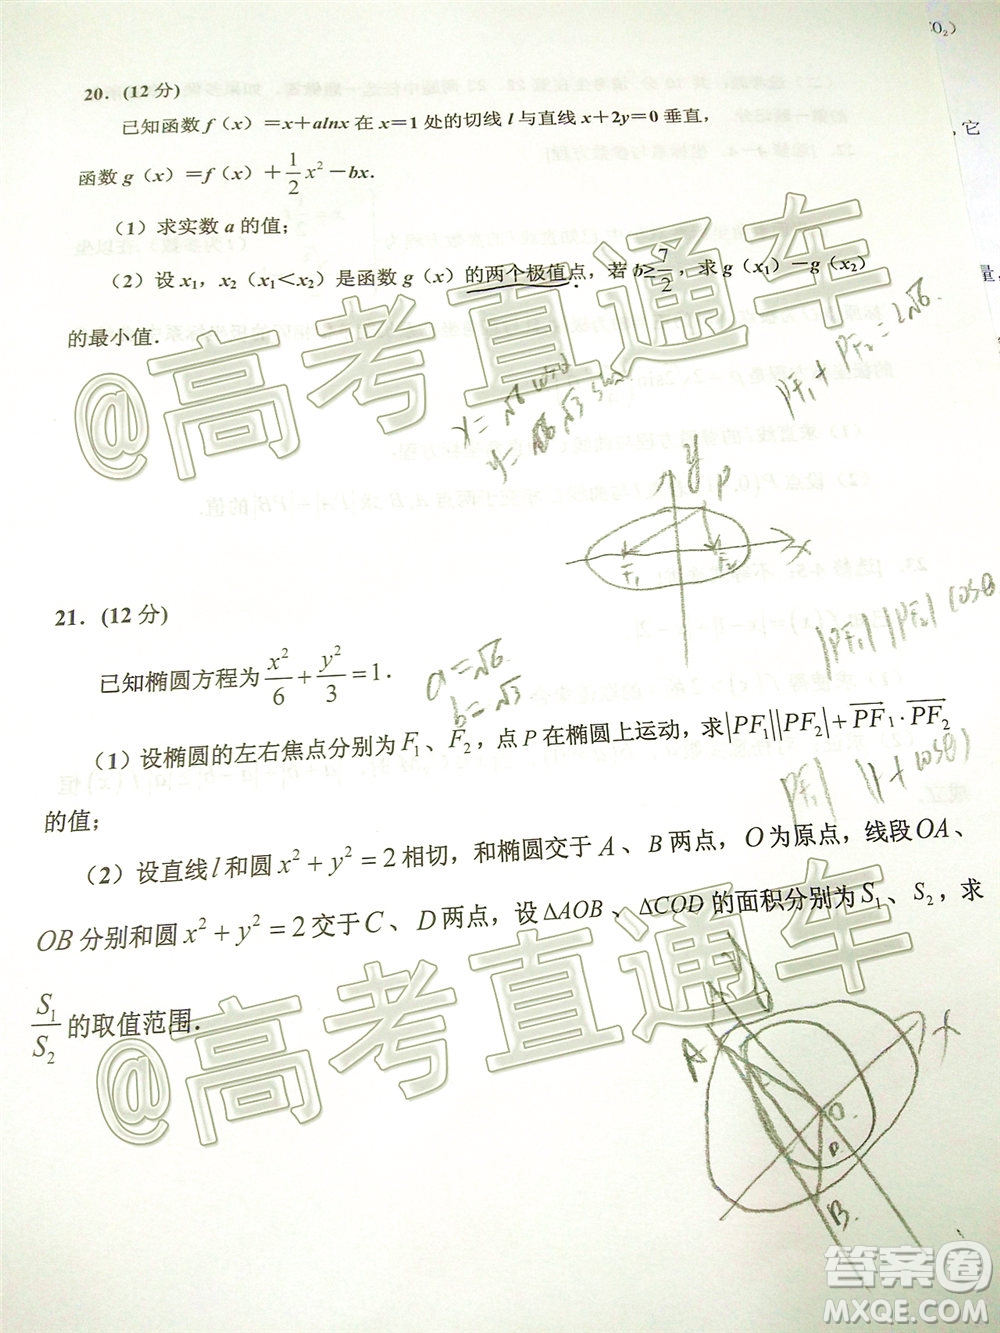 O₂)
20. (12 分)
已知函数 f (x) =x+alnx 在 x=1 处的切线 l 与直线 x+2y=0 垂直,
，它
函数 g (x) =f (x) +\frac{1}{2}x²-bx.
(1) 求实数 a 的值;
(2) 设 x₁, x₂ (x₁<x₂) 是函数 g (x) 的两个极值点, 若 b≥\frac{7}{2}, 求 g (x₁) -g (x₂)
量,
的最小值.
PF₁ + PF₂ = 2√6
x = √6
y
P
F₁
F₂
x
21. (12 分)
已知椭圆方程为\frac{x²}{6}+\frac{y²}{3}=1.
a=√6
b=√3
|PF₁||PF₂|cosθ
(1) 设椭圆的左右焦点分别为 F₁、F₂，点 P 在椭圆上运动, 求|PF₁||PF₂|+\overline{PF}₁·\overline{PF}₂
的值;
(2) 设直线 l 和圆 x²+y²=2 相切, 和椭圆交于 A、B 两点, O 为原点, 线段 OA、
OB 分别和圆 x²+y²=2 交于 C、D 两点, 设 △AOB、△COD 的面积分别为 S₁、S₂, 求
\frac{S₁}{S₂} 的取值范围.
A
y
x
O
D
B
@高考直通车
@高考直通车
答案圈
MXQE.COM